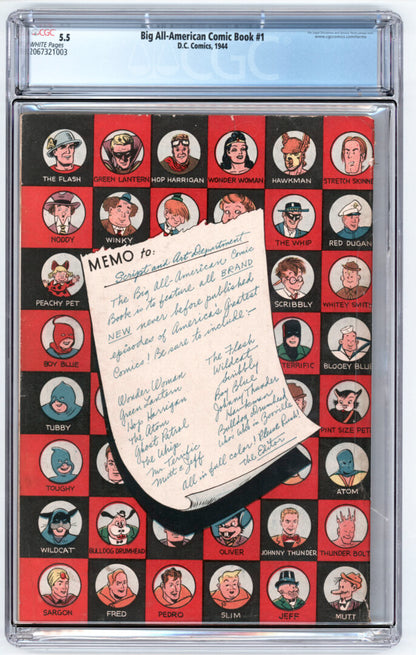 CGC
5.5
WHITE Pages
2067321003
Big All-American Comic Book #1
D.C. Comics, 1944
CGC
www.cgccomics.com/terms
THE FLASH
GREEN LANTERN
HOP HARRIGAN
WONDER WOMAN
HAWKMAN
STRETCH SKINNE
NODDY
WINKY
THE WHIP
RED DUGAN
PEACHY PET
SCRIBBLY
WHITEY SMITH
BOY BLUE
TERRIFIC
BLOOEY BLUE
TUBBY
PINT SIZE PET
TOUGHY
ATOM
WILDCAT
BULLDOG DRUMHEAD
OLIVER
JOHNNY THUNDER
THUNDER BOLT
SARGON
FRED
PEDRO
SLIM
JEFF
MUTT
MEMO to:
Script and Art Department
The Big All-American Comic
Book is to feature all BRAND
NEW never before published
episodes of America's Greatest
Comics! Be sure to include:-
Wonder Woman
Green Lantern
Hop Harrigan
The Atom
Ghost Patrol
The Whip
Mr. Terrific
Mutt & Jeff
The Flash
Wildcat
Scribbly
Boy Blue
Johnny Thunder
Hawkman
Bulldog Drumhead
All in full color! Please Rush!
the Editor